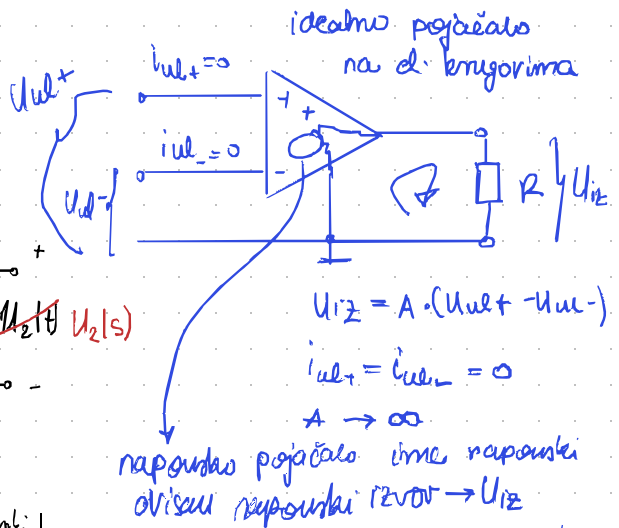 idealno pojačalo
na el. krugovima
iul+=0
Uul+
+
+
iul-=0
-
Uul-
R
Uiz
+
U2(t) U2(s)
-
Uiz = A·(Uul+ -Uul-)
iul+ = iul- = 0
A → ∞
naponsko pojačalo ima naponski
ovisan naponski izvor → Uiz